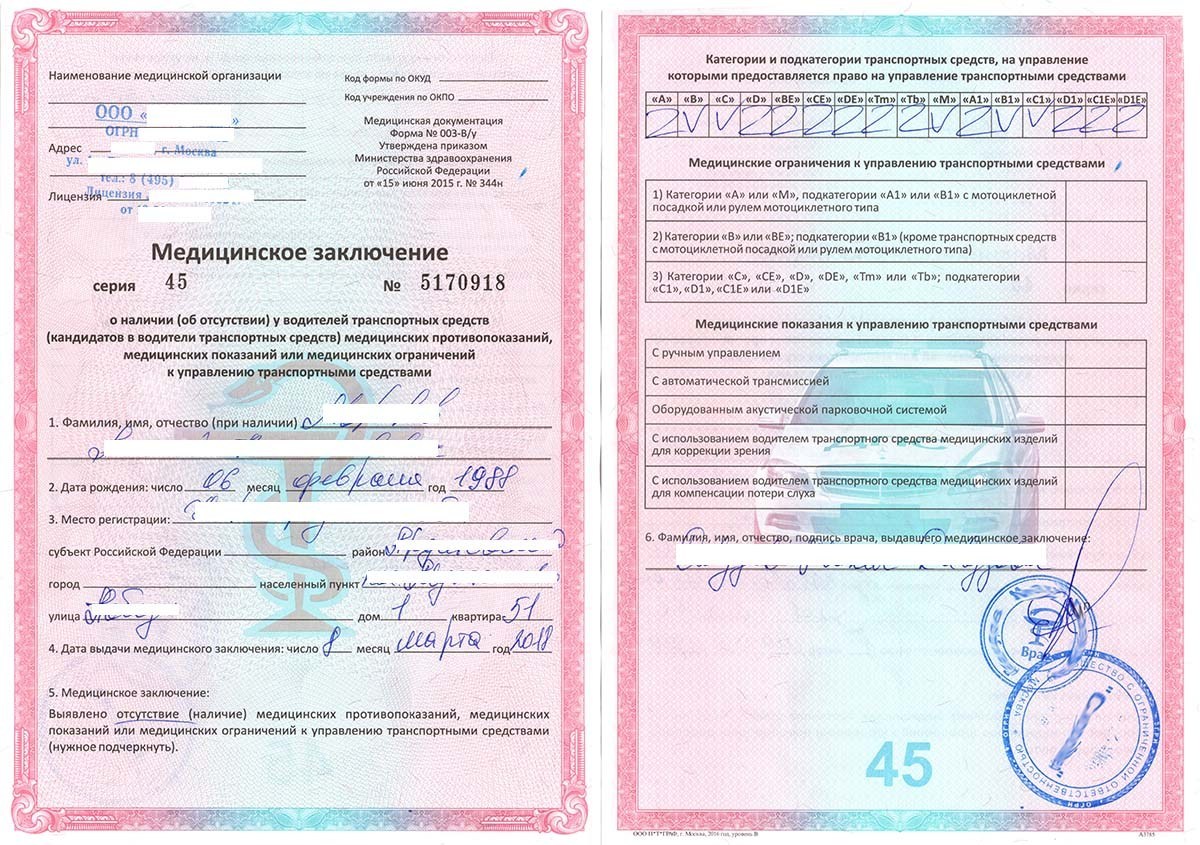 Наименование медицинской организации
ООО « »
ОГРН
Адрес , г. Москва
ул.
Тел.: 8 (495)
Лицензия Лицензия
от
Код формы по ОКУД
Код учреждения по ОКПО
Медицинская документация
Форма № 003-В/у
Утверждена приказом
Министерства здравоохранения
Российской Федерации
от «15» июня 2015 г. № 344н
Медицинское заключение
серия 45 № 5170918
о наличии (об отсутствии) у водителей транспортных средств
(кандидатов в водители транспортных средств) медицинских противопоказаний,
медицинских показаний или медицинских ограничений
к управлению транспортными средствами
1. Фамилия, имя, отчество (при наличии)
2. Дата рождения: число 06 месяц февраля год 1988
3. Место регистрации:
субъект Российской Федерации район
город населенный пункт
улица дом 1 квартира 51
4. Дата выдачи медицинского заключения: число 8 месяц марта год 2018
5. Медицинское заключение:
Выявлено отсутствие (наличие) медицинских противопоказаний, медицинских
показаний или медицинских ограничений к управлению транспортными средствами
(нужное подчеркнуть).
Категории и подкатегории транспортных средств, на управление
которыми предоставляется право на управление транспортными средствами
«A» «B» «C» «D» «BE» «CE» «DE» «Tm» «Tb» «M» «A1» «B1» «C1» «D1» «C1E» «D1E»
Z V V Z Z Z Z Z Z V Z V V Z Z Z
Медицинские ограничения к управлению транспортными средствами
1) Категории «A» или «M», подкатегории «A1» или «B1» с мотоциклетной
посадкой или рулем мотоциклетного типа
2) Категории «B» или «BE»; подкатегории «B1» (кроме транспортных средств
с мотоциклетной посадкой или рулем мотоциклетного типа)
3) Категории «C», «CE», «D», «DE», «Tm» или «Tb»; подкатегории
«C1», «D1», «C1E» или «D1E»
Медицинские показания к управлению транспортными средствами
С ручным управлением
С автоматической трансмиссией
Оборудованным акустической парковочной системой
С использованием водителем транспортного средства медицинских изделий
для коррекции зрения
С использованием водителем транспортного средства медицинских изделий
для компенсации потери слуха
6. Фамилия, имя, отчество, подпись врача, выдавшего медицинское заключение:
Врач
ОБЩЕСТВО С ОГРАНИЧЕННОЙ ОТВЕТСТВЕННОСТЬЮ
МОСКВА
ОГРН
45
ООО Н*Т*ГРАФ, г. Москва, 2016 год, уровень В
А3785